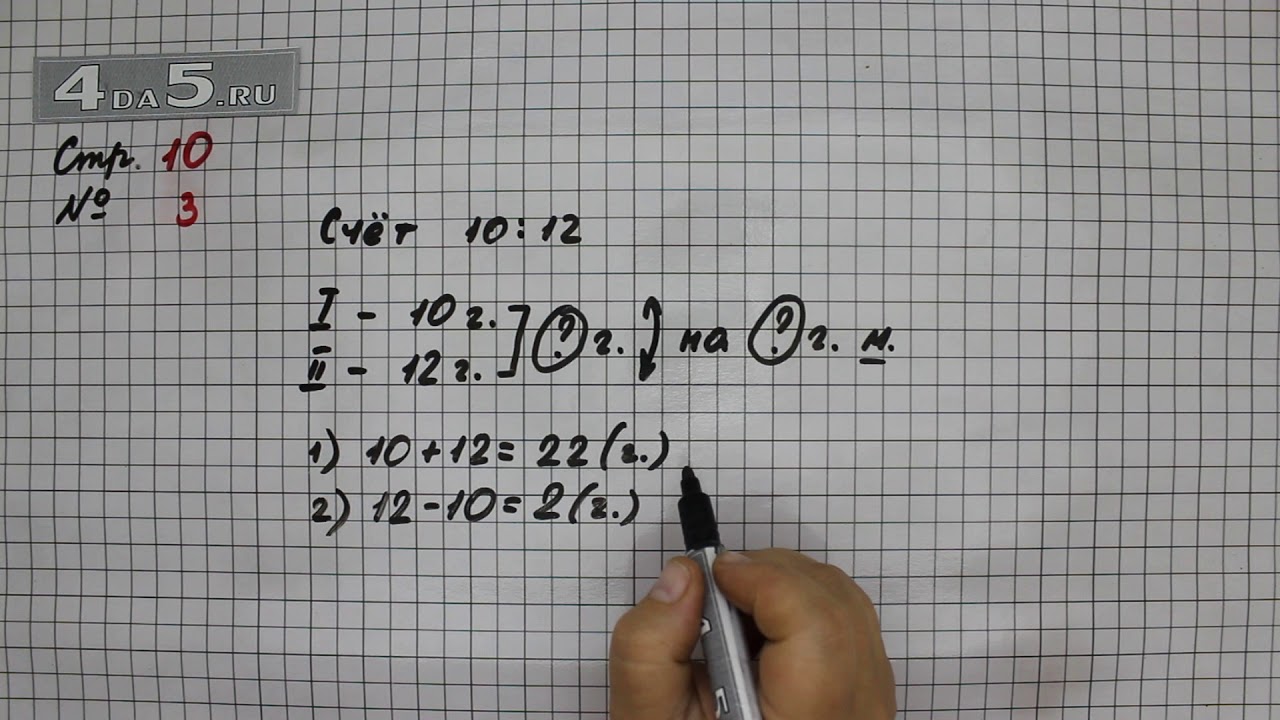 4DA5.RU
Стр. 10
№ 3
Счёт 10:12
I - 10 г. ] ? г. на ? г. м.
II - 12 г.
1) 10+12=22(г.)
2) 12-10=2(г.)
5